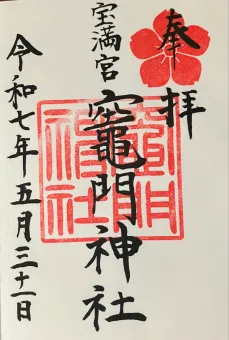 奉拝
宝満宮
竈門神社
令和七年五月三十一日
竈門
神社